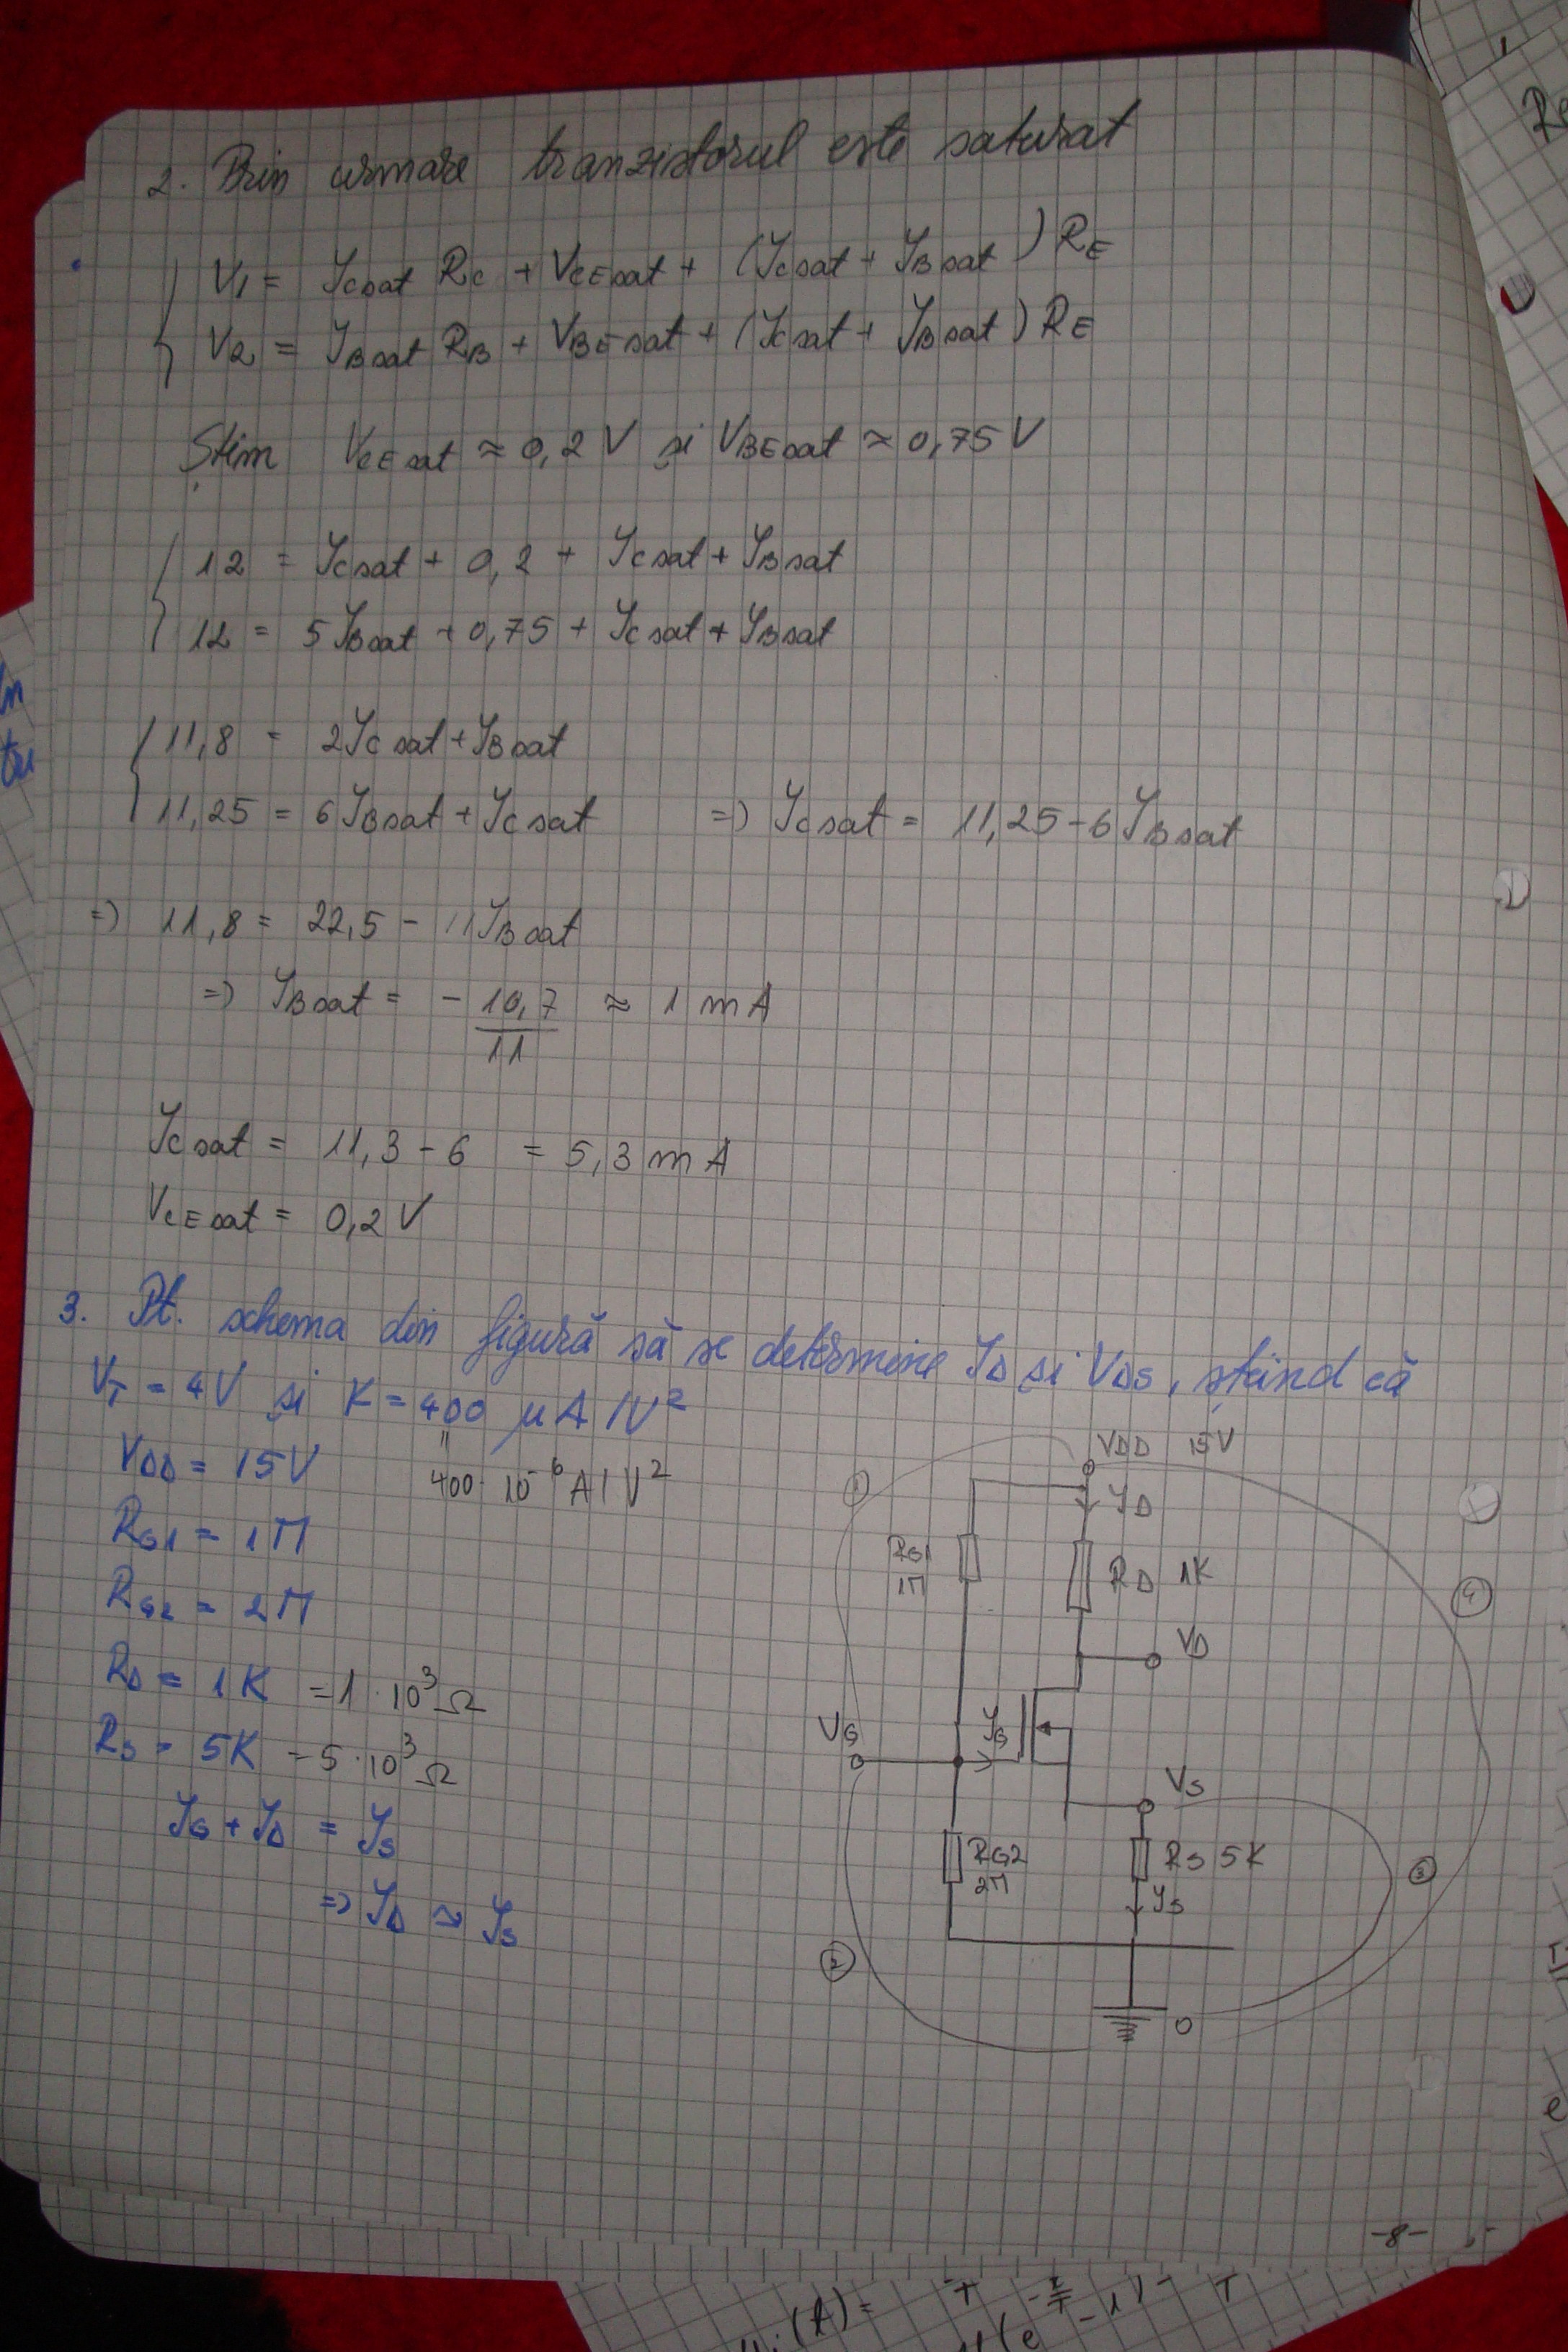 2. Prin urmare tranzistorul este saturat
V1 = ICsat RC + VCEsat + (ICsat + IBsat) RE
V2 = IBsat RB + VBEsat + (ICsat + IBsat) RE
Stim VCEsat ≈ 0,2 V și VBEsat ≈ 0,75 V
12 = ICsat + 0,2 + ICsat + IBsat
12 = 5 IBsat + 0,75 + ICsat + IBsat
11,8 = 2 ICsat + IBsat
11,25 = 6 IBsat + ICsat => ICsat = 11,25 - 6 IBsat
=> 11,8 = 22,5 - 11 IBsat
=> IBsat = - 10,7 / 11 ≈ 1 mA
ICsat = 11,3 - 6 = 5,3 mA
VCEsat = 0,2 V
3. Pt. schema din figură să se determine ID și VDS, știind că
VT = 4V și K = 400 μA/V²
VDD = 15V
400 · 10⁻⁶ A/V²
RG1 = 1M
RG2 = 2M
RD = 1K = 1 · 10³ Ω
RS = 5K = 5 · 10³ Ω
IG + ID = IS
=> ID ≈ IS
VDD 15V
1
ID
RG1
1M
RD 1K
4
VD
VG
IG
VS
RG2
2M
RS 5K
3
IS
2
0
-8-